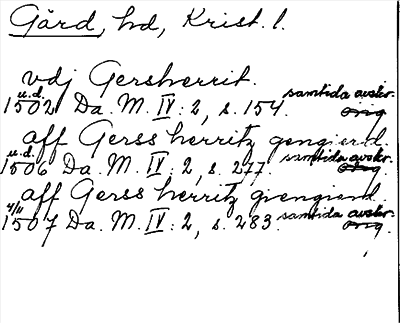 Gärd, hd, Krist. l.
vdj Gersherrit.
u.d. samtida avskr.
1502 Da. M. IV: 2, s. 154. orig
aff Gerss herritz gengierd
u.d. samtida avskr.
1506 Da. M. IV: 2, s. 277. orig.
aff Gerss herritz giengierd.
4/11 samtida avskr.
1507 Da. M. IV: 2, s. 283. orig.